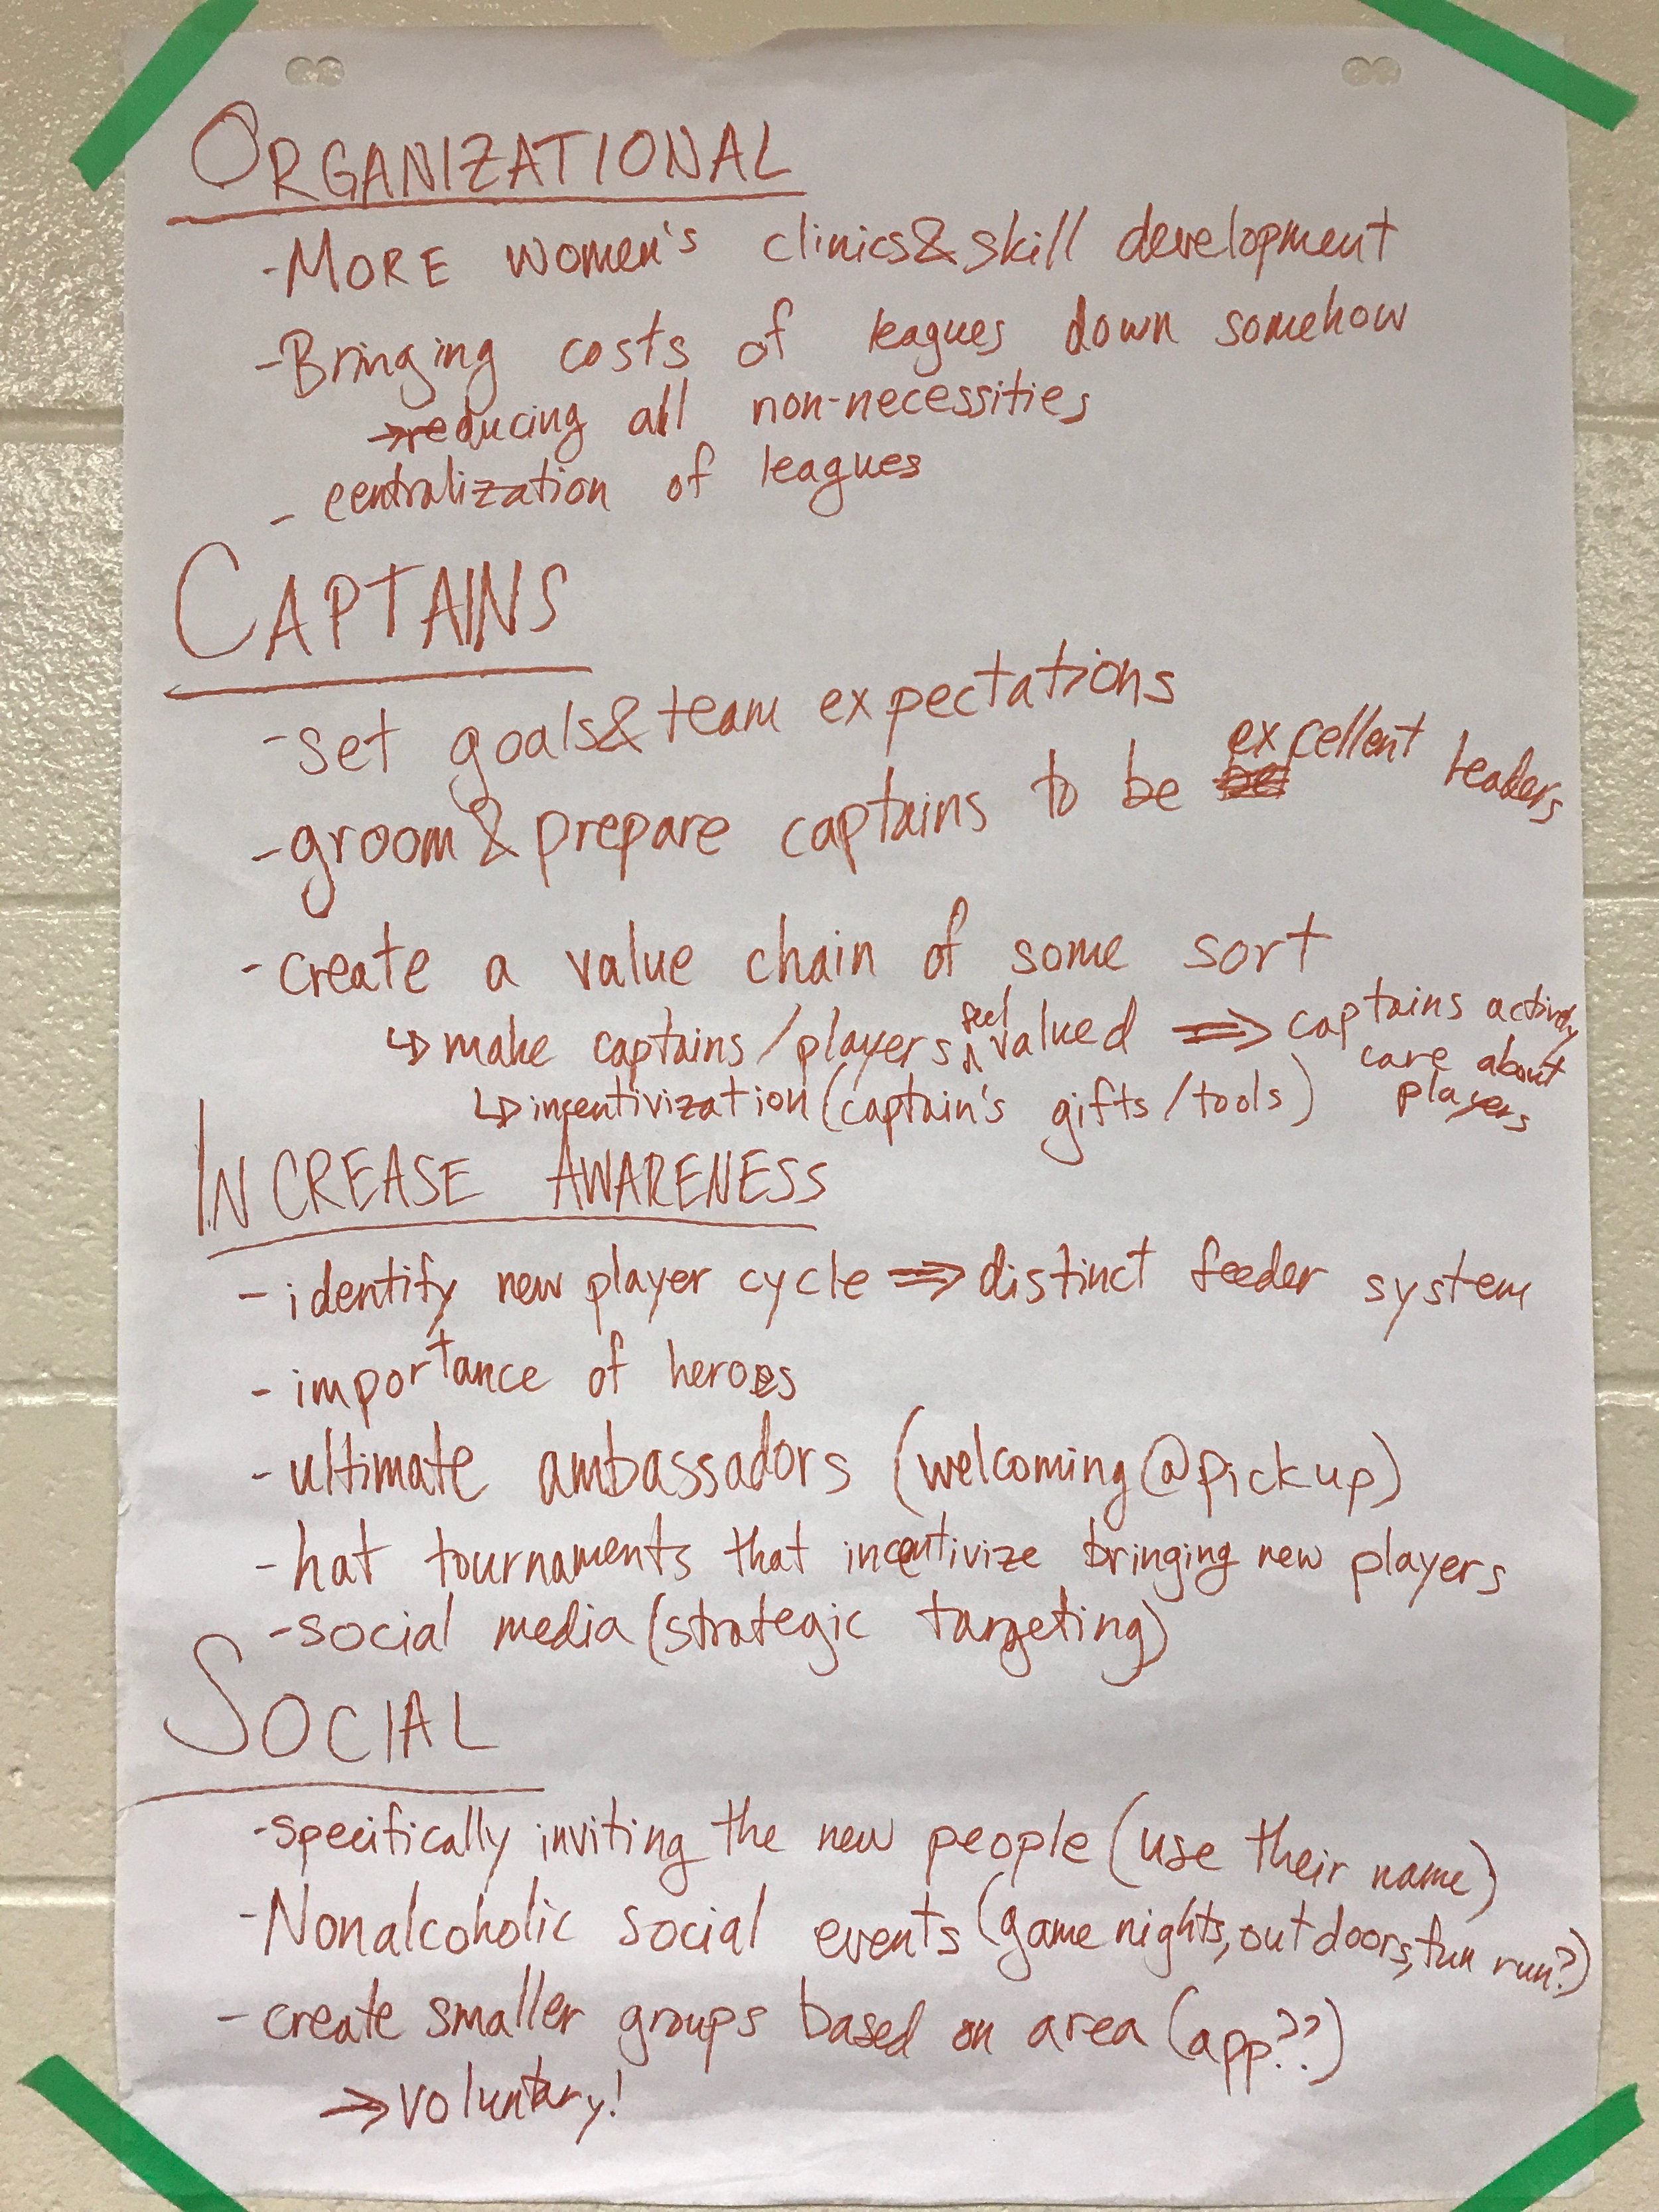 ORGANIZATIONAL
-MORE women's clinics&skill development
-Bringing costs of leagues down somehow
→reducing all non-necessities
- centralization of leagues
CAPTAINS
-set goals&team expectations
-groom&prepare captains to be excellent leaders
-create a value chain of some sort
↳ make captains/players feel valued ⇒ captains actively care about players
↳ incentivization (captain's gifts/tools)
INCREASE AWARENESS
- identify new player cycle ⇒ distinct feeder system
- importance of heroes
- ultimate ambassadors (welcoming@pickup)
- hat tournaments that incentivize bringing new players
-social media (strategic targeting)
SOCIAL
-specifically inviting the new people (use their name)
-Nonalcoholic social events (game nights, outdoors, fun run?)
- create smaller groups based on area (app??)
→ voluntary!